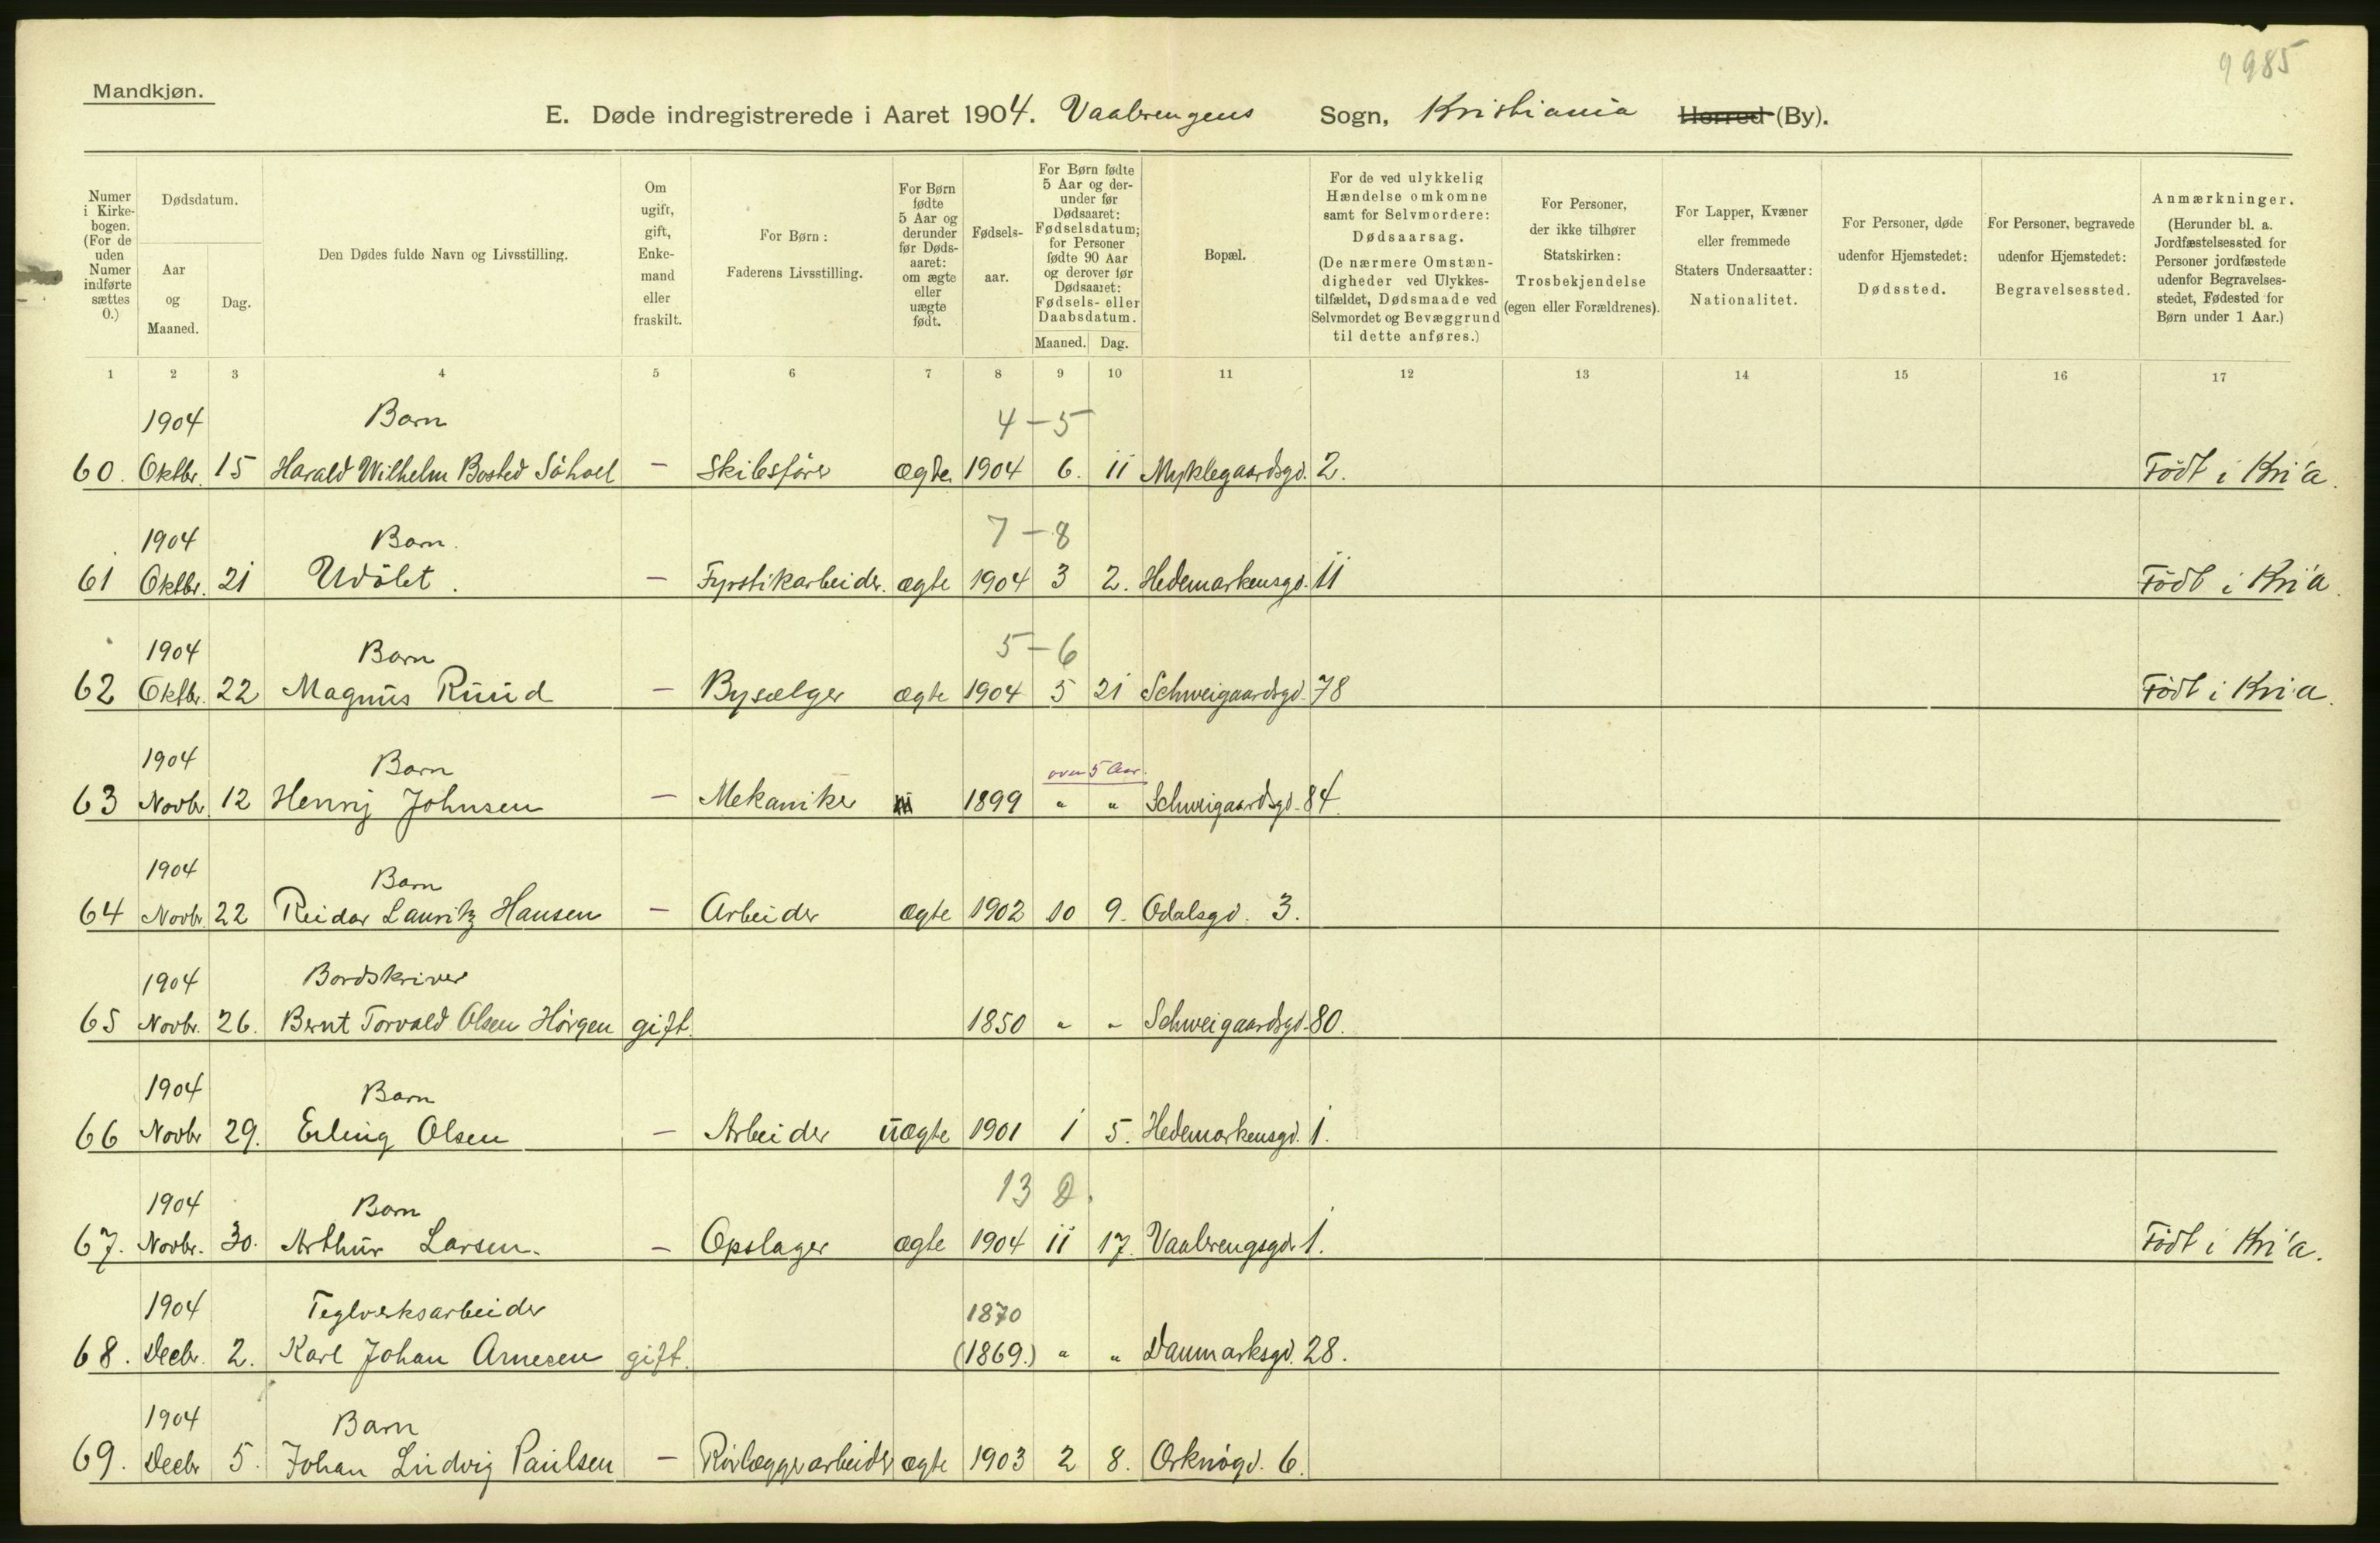 9985
Mandkjøn.
E. Døde indregistrerede i Aaret 1904. Vaalrengens Sogn, Kristiania Herred (By).
Numer i Kirke-bogen. (For de uden Numer indførte sættes 0.)
Dødsdatum.
Aar og Maaned.
Dag.
Den Dødes fulde Navn og Livsstilling.
Om ugift, gift, Enke-mand eller fraskilt.
For Børn: Faderens Livsstilling.
For Børn fødte 5 Aar og derunder før Døds-aaret: om ægte eller uægte født.
Fødsels-aar.
For Børn fødte 5 Aar og der-under før Dødsaaret: Fødselsdatum; for Personer fødte 90 Aar og derover før Dødsaaret: Fødsels- eller Daabsdatum.
Maaned. Dag.
Bopæl.
For de ved ulykkelig Hændelse omkomne samt for Selvmordere: Dødsaarsag. (De nærmere Omstæn-digheder ved Ulykkes-tilfældet, Dødsmaade ved Selvmordet og Bevæggrund til dette anføres.)
For Personer, der ikke tilhører Statskirken: Trosbekjendelse (egen eller Forældrenes).
For Lapper, Kvæner eller fremmede Staters Undersaatter: Nationalitet.
For Personer, døde udenfor Hjemstedet: Dødssted.
For Personer, begravede udenfor Hjemstedet: Begravelsessted.
Anmærkninger. (Herunder bl. a. Jordfæstelsessted for Personer jordfæstede udenfor Begravelses-stedet, Fødested for Børn under 1 Aar.)
1 2 3 4 5 6 7 8 9 10 11 12 13 14 15 16 17
1904 Barn 4-5
60. Oktbr. 15 Harald Wilhelm Bosted – Skibsfører ægte 1904 6. 11 Myklegaardsgd. 2. Född i Kri'a.
1904 Barn. 7-8
61 Oktbr. 21 Udøbt. – Fyrstikarbeider. ægte 1904 3 2. Hedemarkensgd. 11 Född i Kri'a.
1904 Barn 5-6
62 Oktbr. 22 Magnus Ruud – Bysælger ægte 1904 5 21 Schweigaardsgd. 78 Född i Kria.
1904 Barn over 5 Aar.
63 Novbr. 12 Henry Johnsen – Mekaniker 1899 " " Schweigaardsgd. 84.
1904 Barn
64 Novbr. 22 Reidar Lauritz Hansen – Arbeider ægte 1902 10 9. Odalsgd. 3.
1904 Bordskriver
65 Novbr. 26. Bernt Torvald Olsen Hørgen gift. 1850 " " Schweigaardsgd. 80.
1904 Barn
66 Novbr 29. Erling Olsen – Arbeider uægte 1901 1 5. Hedemarkensgd. 1.
1904 Barn 13 D.
67. Novbr. 30. Arthur Larsen. – Opslager ægte 1904 11 17. Vaalrengsgd. 1. Född i Kri'a.
1904 Teglverksarbeider 1870
68. Decbr. 2. Karl Johan Arnesen gift. (1869.) " " Danmarksgd. 28.
1904 Barn
69. Decbr 5. Johan Ludvig Paulsen – Rørlæggerarbeider ægte 1903 2 8. Orknøgd. 6.